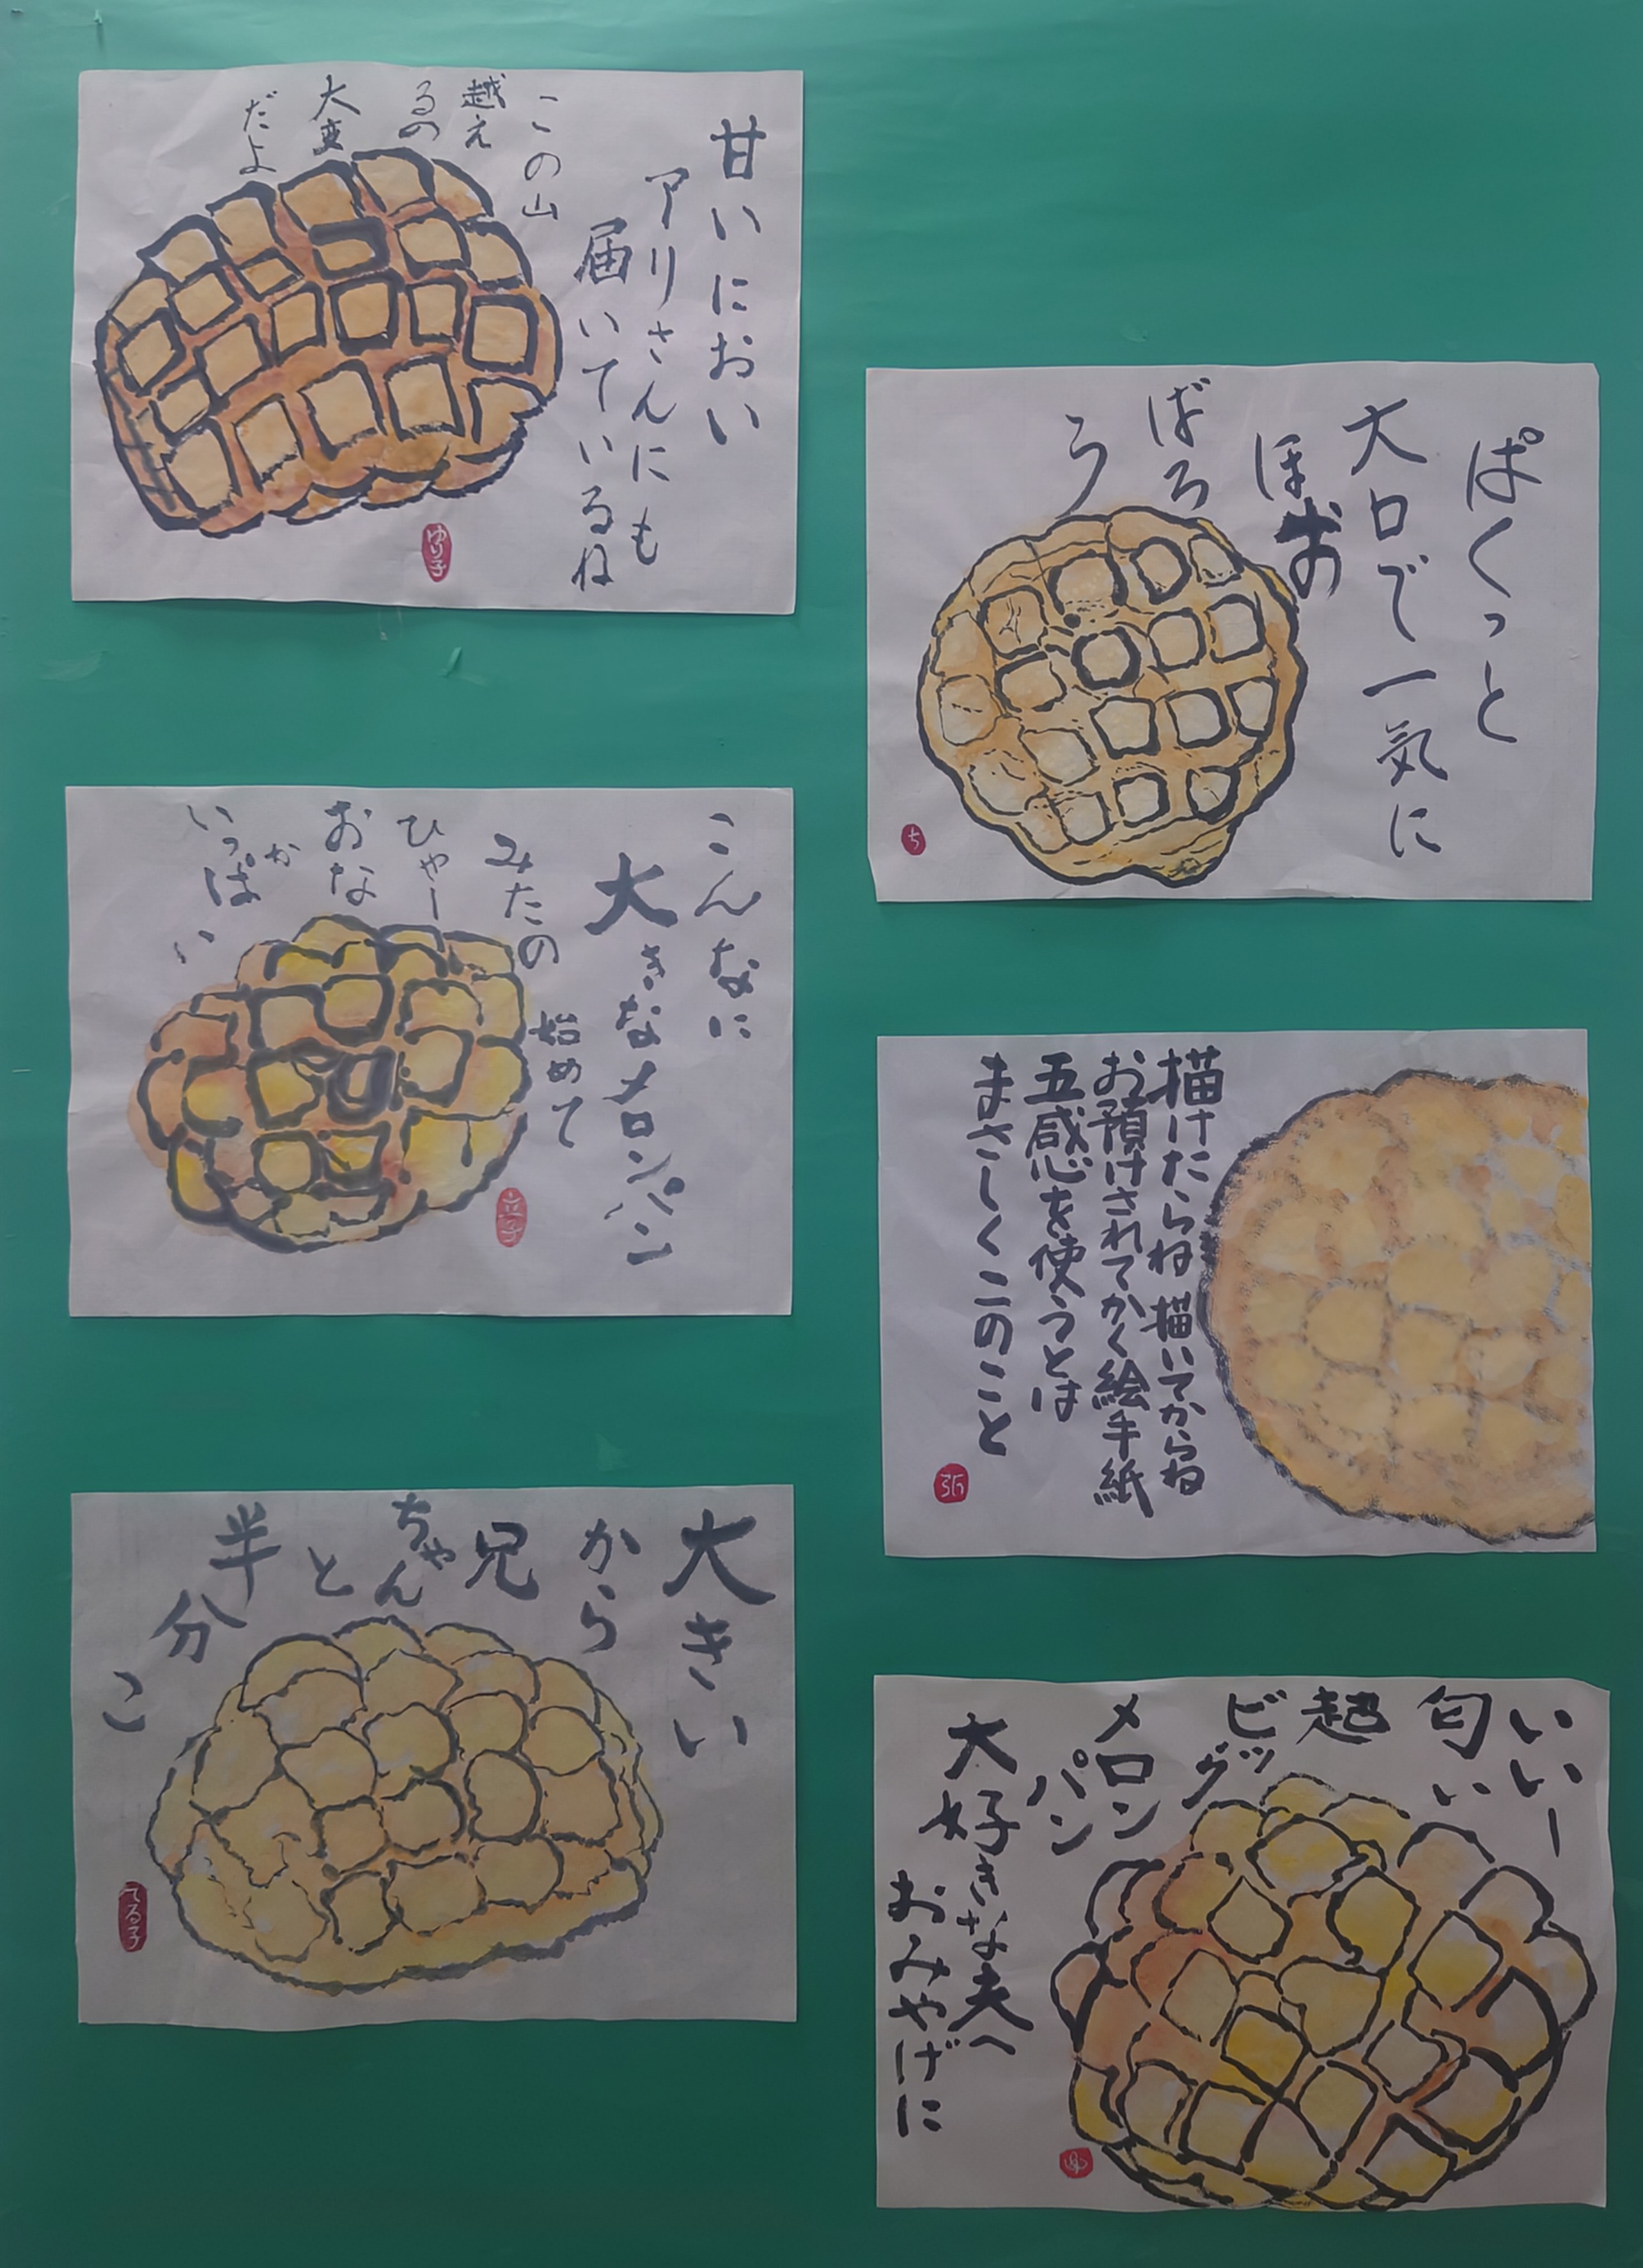 甘いにおい
アリさんにも
届いているね
この山
越え
るの
大変
だよ
ゆり子
ぱくっと
大口で一気に
ほお
ばろ
う
ち
こんなに
大きなメロンパン
始めて
みたの
ひゃー
おな
か
いっぱ
い
描けたらね 描いてからね
お預けされてかく絵手紙
五感を使うとは
まさしくこのこと
大きい
から
兄
ちゃん
と
半
分
こ
てる子
いいー
匂い
超
ビッグ
メロン
パン
大好きな夫へ
おみやげに